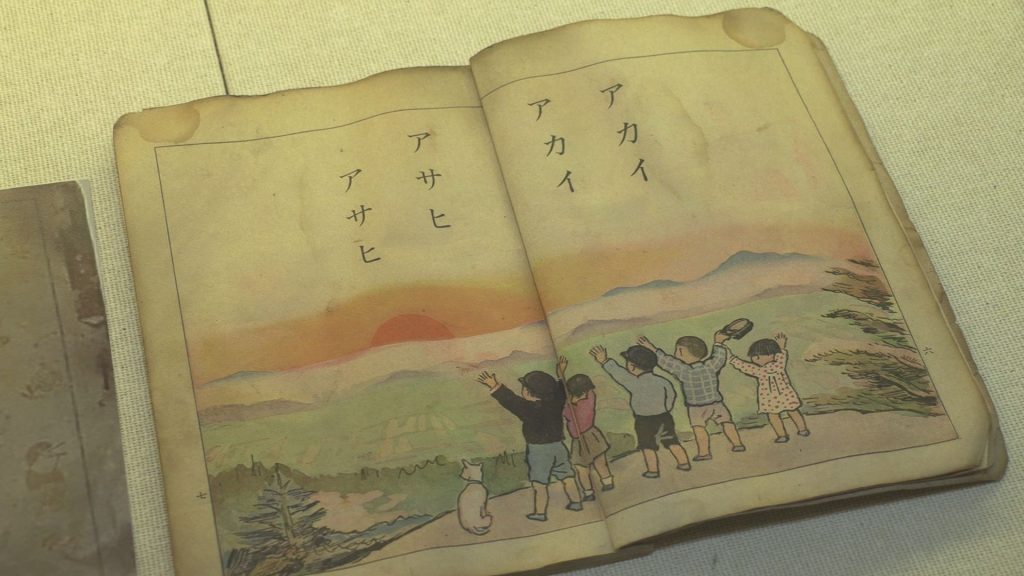 アカイ
アカイ
アサヒ
アサヒ
六
七